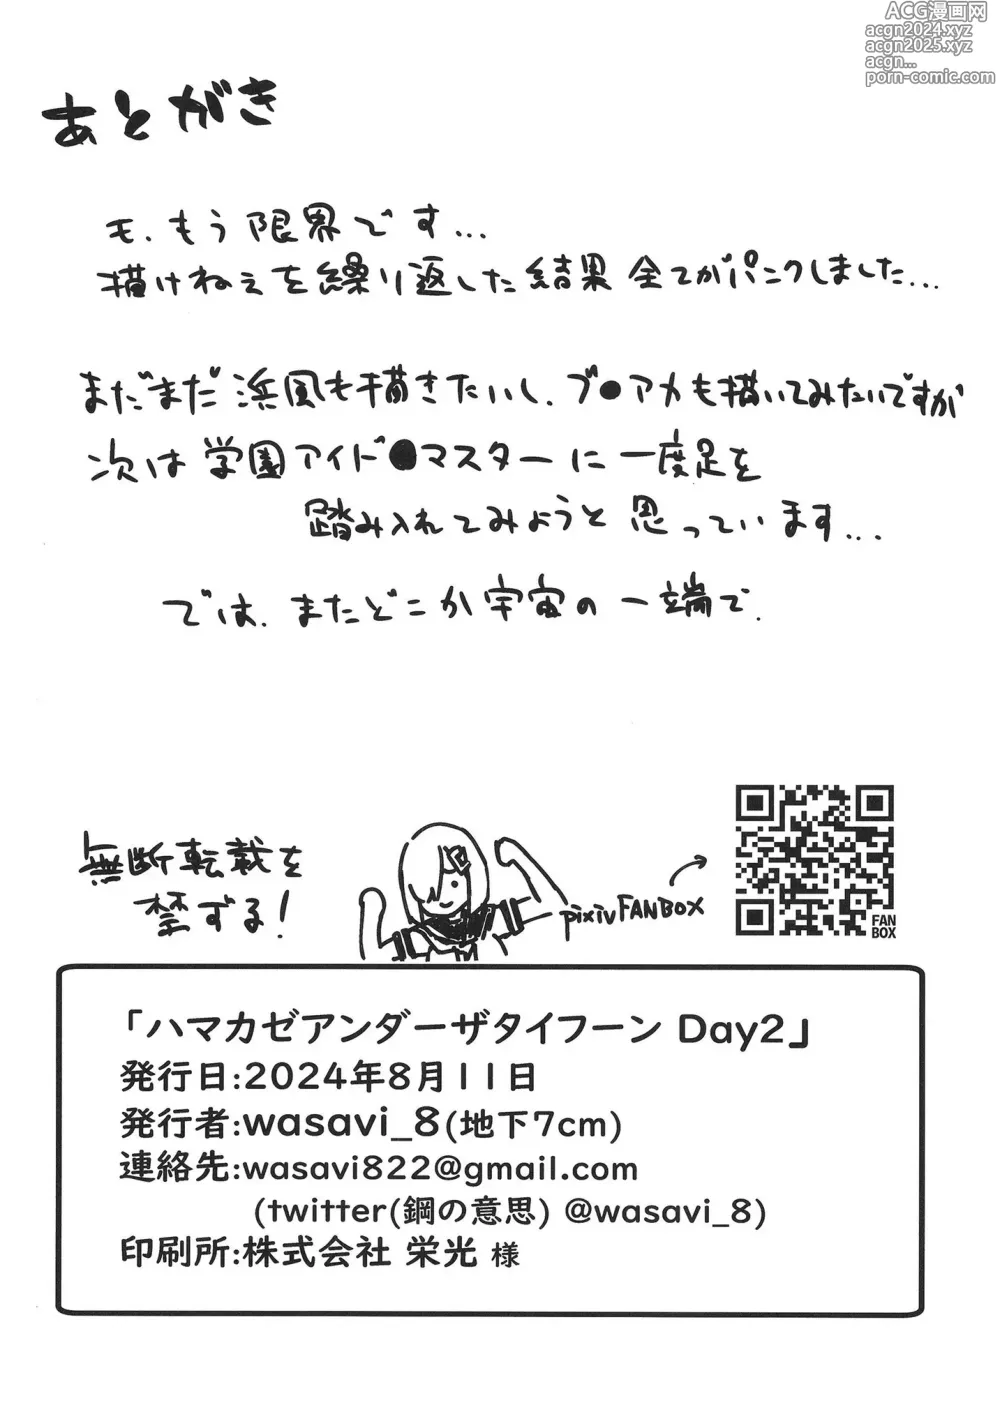 ACG漫画网
acgn2024.xyz
acgn2025.xyz
acgn...
porn-comic.com
あとがき
モ、もう限界です...
描けねぇを繰り返した結果 全てがパンクしました...
まだまだ浜風も描きたいし、ブ●アカも描いてみたいですが
次は学園アイド●マスターに一度足を
踏み入れてみようと思っています...
では、またどこか宇宙の一端で.
無断転載を
禁ずる!
pixivFANBOX
FAN
BOX
「ハマカゼアンダーザタイフーン Day2」
発行日:2024年8月11日
発行者:wasavi_8(地下7cm)
連絡先:wasavi822@gmail.com
(twitter(鋼の意思) @wasavi_8)
印刷所:株式会社 栄光 様